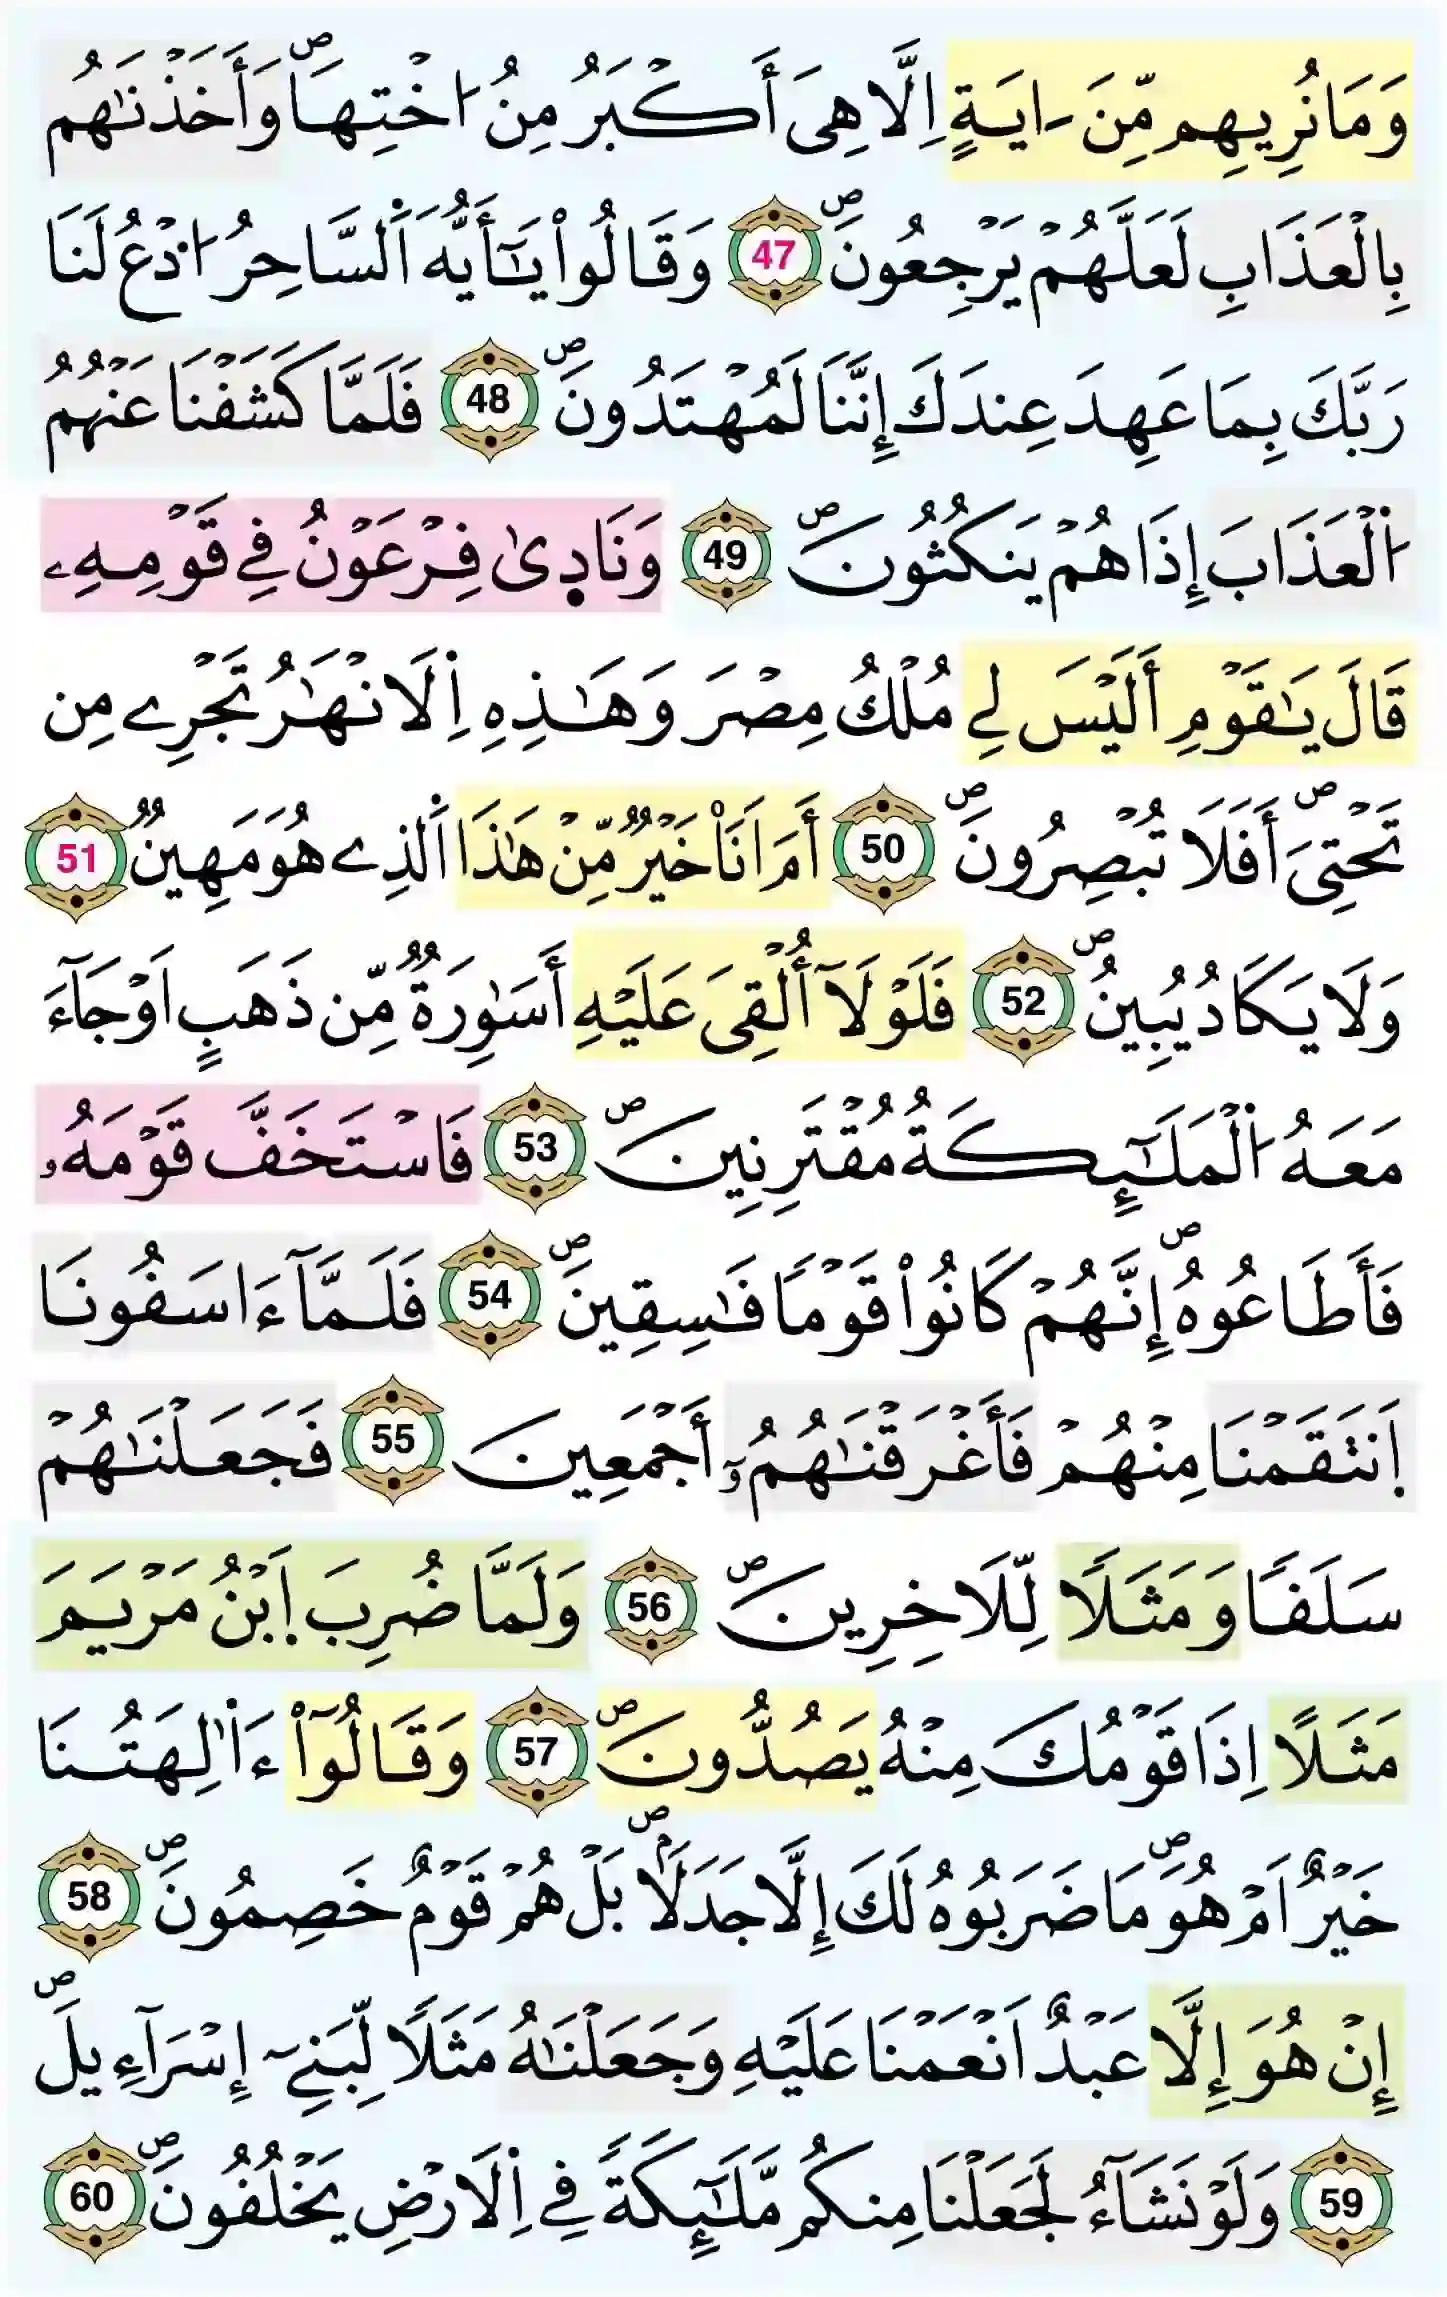 وَمَا نُرِيهِم مِّنَ ـايَةٍ اِلَّا هِيَ أَكْبَرُ مِنُ اخْتِهَاۖ وَأَخَذْنَٰهُم
بِالْعَذَابِ لَعَلَّهُمْ يَرْجِعُونَۖ 47 وَقَالُواْ يَٰٓأَيُّهَ اَ۬لسَّاحِرُ ا۟دْعُ لَنَا
رَبَّكَ بِمَا عَهِدَ عِندَكَ إِنَّنَا لَمُهْتَدُونَۖ 48 فَلَمَّا كَشَفْنَا عَنْهُمُ
اُ۬لْعَذَابَ إِذَا هُمْ يَنكُثُونَۖ 49 وَنَادٜىٰ فِرْعَوْنُ فِے قَوْمِهِۦ
قَالَ يَٰقَوْمِ أَلَيْسَ لِے مُلْكُ مِصْرَ وَهَٰذِهِ اِ۬لَانْهَٰرُ تَجْرِے مِن
تَحْتِيَۖ أَفَلَا تُبْصِرُونَۖ 50 أَمَ اَنَا۠ خَيْرٌ مِّنْ هَٰذَا اَ۬لذِے هُوَ مَهِينٌ 51
وَلَا يَكَادُ يُبِينُۖ 52 فَلَوْلَآ أُلْقِيَ عَلَيْهِ أَسَٰوِرَةٌ مِّن ذَهَبٍ اَوْ جَآءَ
مَعَهُ اُ۬لْمَلَٰٓئِكَةُ مُقْتَرِنِينَۖ 53 فَاسْتَخَفَّ قَوْمَهُۥ
فَأَطَاعُوهُۖ إِنَّهُمْ كَانُواْ قَوْمًا فَٰسِقِينَۖ 54 فَلَمَّآ ءَاسَفُونَا
اَ۪نتَقَمْنَا مِنْهُمْ فَأَغْرَقْنَٰهُمُۥٓ أَجْمَعِينَ 55 فَجَعَلْنَٰهُمْ
سَلَفًا وَمَثَلًا لِّلَاخِرِينَۖ 56 وَلَمَّا ضُرِبَ اَ۪بْنُ مَرْيَمَ
مَثَلًا اِذَا قَوْمُكَ مِنْهُ يَصُدُّونَۖ 57 وَقَالُوٓاْ ءَا۬لِهَتُنَا
خَيْرٌ اَمْ هُوَۖ مَا ضَرَبُوهُ لَكَ إِلَّا جَدَلَاۢۖ بَلْ هُمْ قَوْمٌ خَصِمُونَۖ 58
إِنْ هُوَ إِلَّا عَبْدٌ اَنْعَمْنَا عَلَيْهِ وَجَعَلْنَٰهُ مَثَلًا لِّبَنِےٓ إِسْرَآءِيلَۖ
59 وَلَوْ نَشَآءُ لَجَعَلْنَا مِنكُم مَّلَٰٓئِكَةً فِے اِ۬لَارْضِ يَخْلُفُونَۖ 60